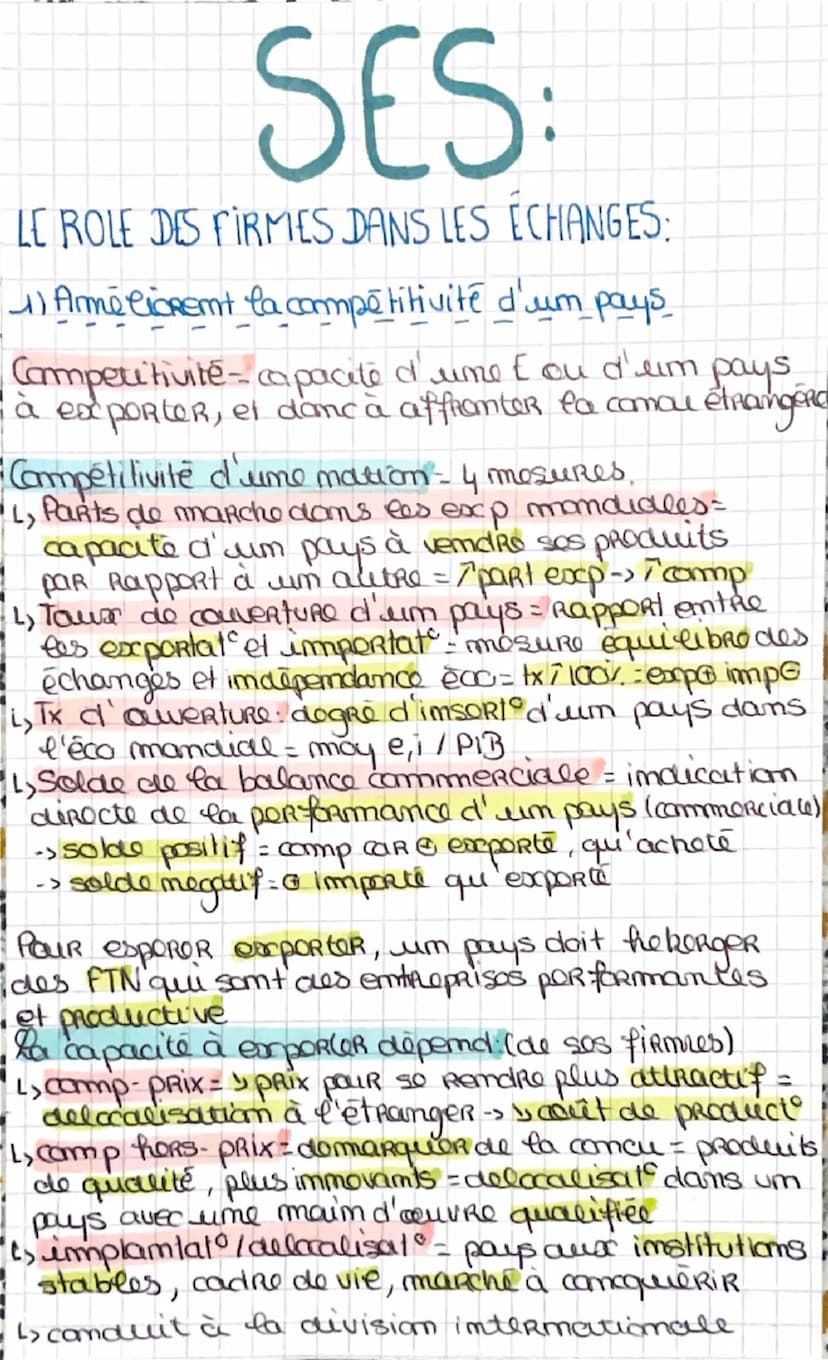 SES:
LE ROLE DES FIRMES DANS LES ÉCHANGES:
1) Améliorent la compétitivité d'um pays
Competitivité = capacité d'une E ou d'um pays
à exporter, et donc à affronter la concu étrangère
Compétitivité d'une nation = 4 mesures.
↳ Parts de marche dans les exp mondiales =
capacité d'um pays à vendre ses produits
par rapport à um autre = ↗part exp -> ↗comp
↳ Taux de couverture d'um pays = Rapport entre
les exportat° et importat° = mesure équilibre des
échanges et indépendance éco = tx↗100% = exp⊕ imp⊖
↳ Tx d'ouverture: degré d'insert° d'um pays dans
l'éco mondiale = moy e,i / PIB
↳ Solde de la balance commmerciale = indication
directe de la performance d'um pays (commerciale)
-> solde positif = comp car ⊕ exporté, qu'acheté
-> solde negatif = ⊕ importé qu'exporté
Pour esperer exporter, um pays doit heberger
des FTN qui sont des entreprises performantes
et productive
La capacité à exporter dépend: (de ses firmes)
↳ comp-prix = ↘ prix pour se rendre plus attractif =
delocalisation à l'étranger -> ↘ coût de product°
↳ comp hors-prix = demarquer de la concu = produits
de qualité, plus innovants = delocalisat° dans um
pays avec une main d'œuvre qualifiée
↳ implantat° / delocalisat° = pays aux institutions
stables, cadre de vie, marché à conquérir
↳ conduit à la division internationale